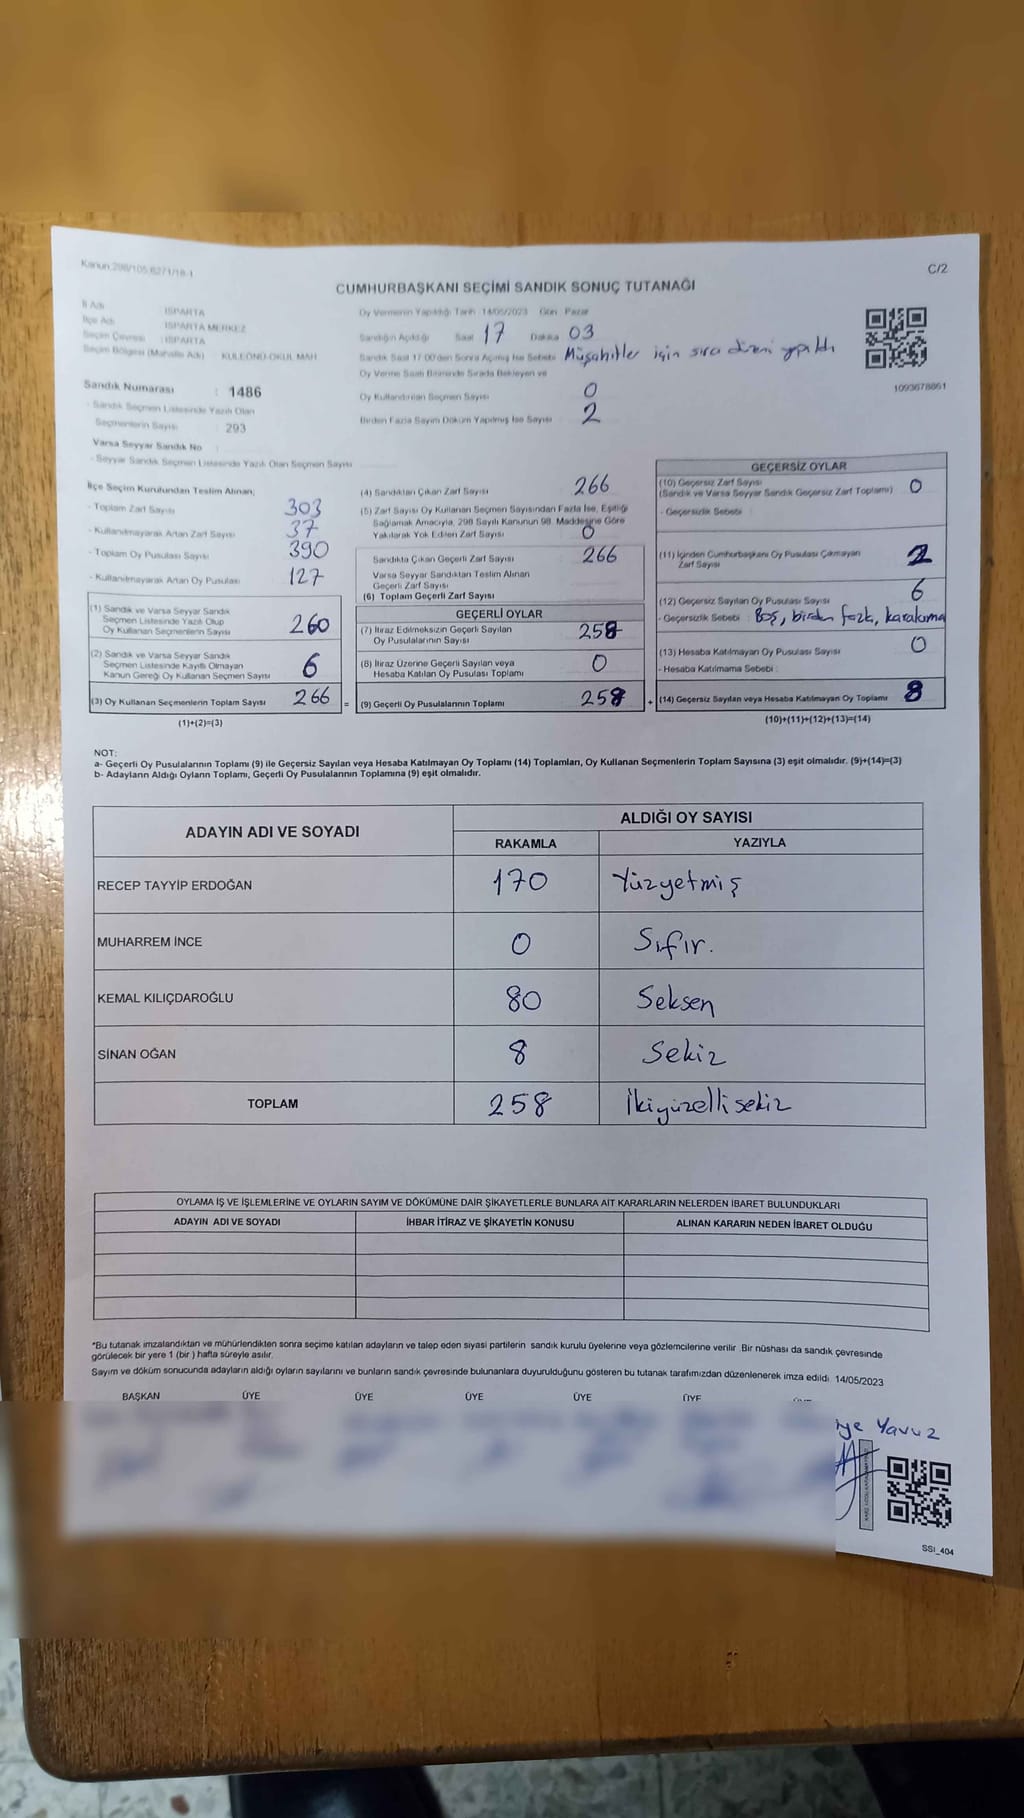 Kanun:298/105;6271/18-1
C/2
CUMHURBAŞKANI SEÇİMİ SANDIK SONUÇ TUTANAĞI
İl Adı : ISPARTA
İlçe Adı : ISPARTA MERKEZ
Seçim Çevresi : ISPARTA
Seçim Bölgesi (Mahalle Adı) : KULEÖNÜ-OKUL MAH
Sandık Numarası : 1486
- Sandık Seçmen Listesinde Yazılı Olan
Seçmenlerin Sayısı : 293
Varsa Seyyar Sandık No :
- Seyyar Sandık Seçmen Listesinde Yazılı Olan Seçmen Sayısı
Oy Vermenin Yapıldığı Tarih 14/05/2023 Gün Pazar
Sandığın Açıldığı Saat 17 Dakika 03
Sandık Saat 17.00'den Sonra Açılmış İse Sebebi Müşahitler için sıra düzeni yapıldı
Oy Verme Saati Bitiminde Sırada Bekleyen ve
Oy Kullandırılan Seçmen Sayısı 0
Birden Fazla Sayım Döküm Yapılmış İse Sayısı 2
1093678861
İlçe Seçim Kurulundan Teslim Alınan;
- Toplam Zarf Sayısı 303
- Kullanılmayarak Artan Zarf Sayısı 37
- Toplam Oy Pusulası Sayısı 390
- Kullanılmayarak Artan Oy Pusulası 127
(1) Sandık ve Varsa Seyyar Sandık
Seçmen Listesinde Yazılı Olup
Oy Kullanan Seçmenlerin Sayısı 260
(2) Sandık ve Varsa Seyyar Sandık
Seçmen Listesinde Kayıtlı Olmayan
Kanun Gereği Oy Kullanan Seçmen Sayısı 6
(3) Oy Kullanan Seçmenlerin Toplam Sayısı 266 =
(1)+(2)=(3)
(4) Sandıktan Çıkan Zarf Sayısı 266
(5) Zarf Sayısı Oy Kullanan Seçmen Sayısından Fazla İse, Eşitliği
Sağlamak Amacıyla, 298 Sayılı Kanunun 98. Maddesine Göre
Yakılarak Yok Edilen Zarf Sayısı 0
Sandıkta Çıkan Geçerli Zarf Sayısı 266
Varsa Seyyar Sandıktan Teslim Alınan
Geçerli Zarf Sayısı
(6) Toplam Geçerli Zarf Sayısı
GEÇERLİ OYLAR
(7) İtiraz Edilmeksizin Geçerli Sayılan
Oy Pusulalarının Sayısı 258
(8) İtiraz Üzerine Geçerli Sayılan veya
Hesaba Katılan Oy Pusulası Toplamı 0
(9) Geçerli Oy Pusulalarının Toplamı 258 +
GEÇERSİZ OYLAR
(10) Geçersiz Zarf Sayısı
(Sandık ve Varsa Seyyar Sandık Geçersiz Zarf Toplamı) 0
- Geçersizlik Sebebi :
(11) İçinden Cumhurbaşkanı Oy Pusulası Çıkmayan
Zarf Sayısı 2
(12) Geçersiz Sayılan Oy Pusulası Sayısı 6
- Geçersizlik Sebebi : Boş, birden fazla, karalama
(13) Hesaba Katılmayan Oy Pusulası Sayısı 0
- Hesaba Katılmama Sebebi :
(14) Geçersiz Sayılan veya Hesaba Katılmayan Oy Toplamı 8
(10)+(11)+(12)+(13)=(14)
NOT:
a- Geçerli Oy Pusulalarının Toplamı (9) ile Geçersiz Sayılan veya Hesaba Katılmayan Oy Toplamı (14) Toplamları, Oy Kullanan Seçmenlerin Toplam Sayısına (3) eşit olmalıdır. (9)+(14)=(3)
b- Adayların Aldığı Oyların Toplamı, Geçerli Oy Pusulalarının Toplamına (9) eşit olmalıdır.
ADAYIN ADI VE SOYADI
ALDIĞI OY SAYISI
RAKAMLA YAZIYLA
RECEP TAYYİP ERDOĞAN 170 Yüzyetmiş
MUHARREM İNCE 0 Sıfır.
KEMAL KILIÇDAROĞLU 80 Seksen
SİNAN OĞAN 8 Sekiz
TOPLAM 258 İkiyüzellisekiz
OYLAMA İŞ VE İŞLEMLERİNE VE OYLARIN SAYIM VE DÖKÜMÜNE DAİR ŞİKAYETLERLE BUNLARA AİT KARARLARIN NELERDEN İBARET BULUNDUKLARI
ADAYIN ADI VE SOYADI İHBAR İTİRAZ VE ŞİKAYETİN KONUSU ALINAN KARARIN NEDEN İBARET OLDUĞU
*Bu tutanak imzalandıktan ve mühürlendikten sonra seçime katılan adayların ve talep eden siyasi partilerin sandık kurulu üyelerine veya gözlemcilerine verilir. Bir nüshası da sandık çevresinde
görülecek bir yere 1 (bir) hafta süreyle asılır.
Sayım ve döküm sonucunda adayların aldığı oyların sayılarını ve bunların sandık çevresinde bulunanlara duyurulduğunu gösteren bu tutanak tarafımızdan düzenlenerek imza edildi. 14/05/2023
BAŞKAN ÜYE ÜYE ÜYE ÜYE ÜYE
Yavuz
SSI_404